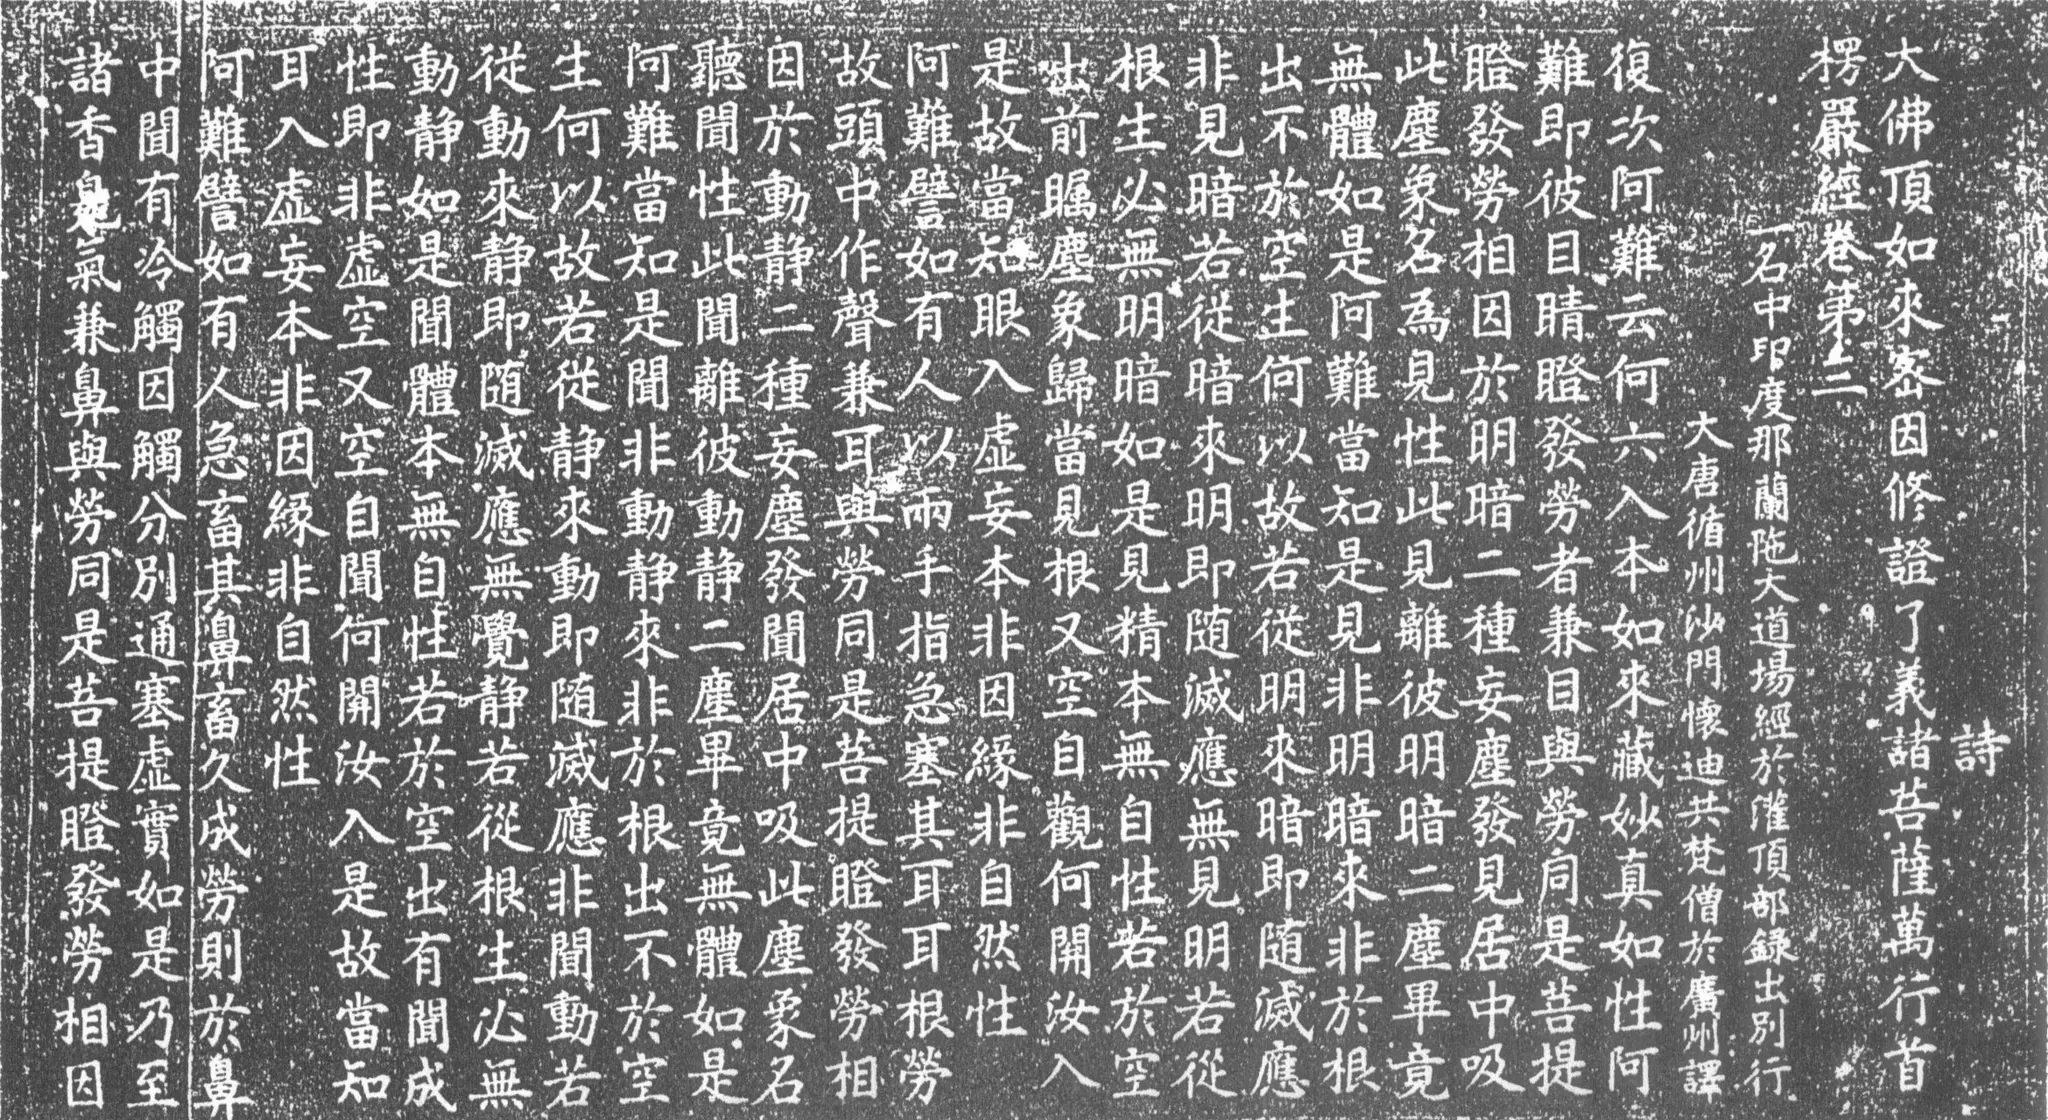 詩
大佛頂如來密因修證了義諸菩薩萬行首
楞嚴經卷第三
一名中印度那蘭陁大道場經於灌頂部錄出別行
大唐循州沙門懷迪共梵僧於廣州譯
復次阿難云何六入本如來藏妙真如性阿
難即彼目睛瞪發勞者兼目與勞同是菩提
瞪發勞相因於明暗二種妄塵發見居中吸
此塵象名為見性此見離彼明暗二塵畢竟
無體如是阿難當知是見非明暗來非於根
出不於空生何以故若從明來暗即随滅應
非見暗若從暗來明即随滅應無見明若從
根生必無明暗如是見精本無自性若於空
出前矚塵象歸當見根又空自觀何關汝入
是故當知眼入虛妄本非因緣非自然性
阿難譬如有人以兩手指急塞其耳耳根勞
故頭中作聲兼耳與勞同是菩提瞪發勞相
因於動静二種妄塵發聞居中吸此塵象名
聽聞性此聞離彼動静二塵畢竟無體如是
阿難當知是聞非動静來非於根出不於空
生何以故若從静來動即随滅應非聞動若
從動來静即随滅應無覺静若從根生必無
動静如是聞體本無自性若於空出有聞成
性即非虛空又空自聞何關汝入是故當知
耳入虛妄本非因緣非自然性
阿難譬如有人急畜其鼻畜久成勞則於鼻
中聞有冷觸因觸分別通塞虛實如是乃至
諸香臰氣兼鼻與勞同是菩提瞪發勞相因